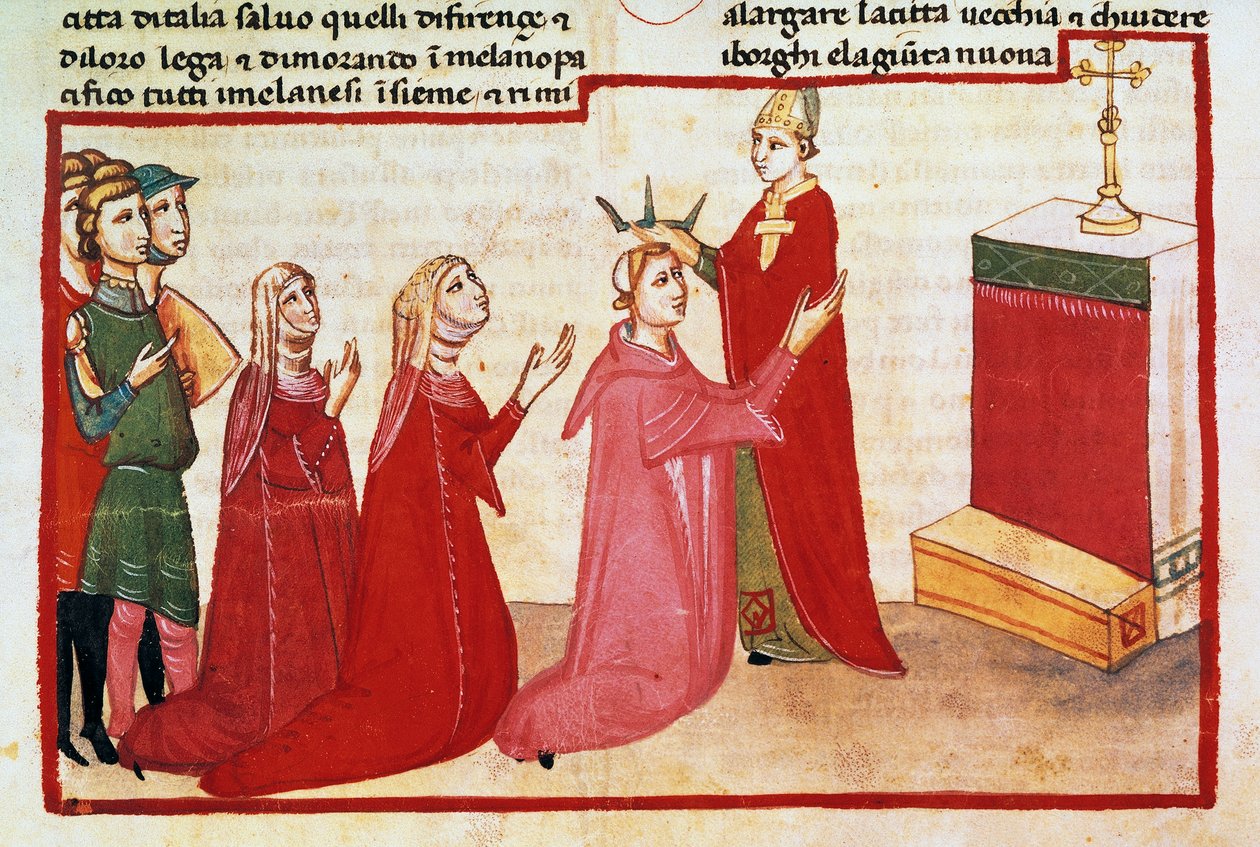 citta ditalia saluo quelli difirenze &
diloro lega & dimorando ī melano pa
cifico tutti imelanesi īsieme & rimi
alargare lacitta uecchia & chiudere
iborghi elagiūta nuoua